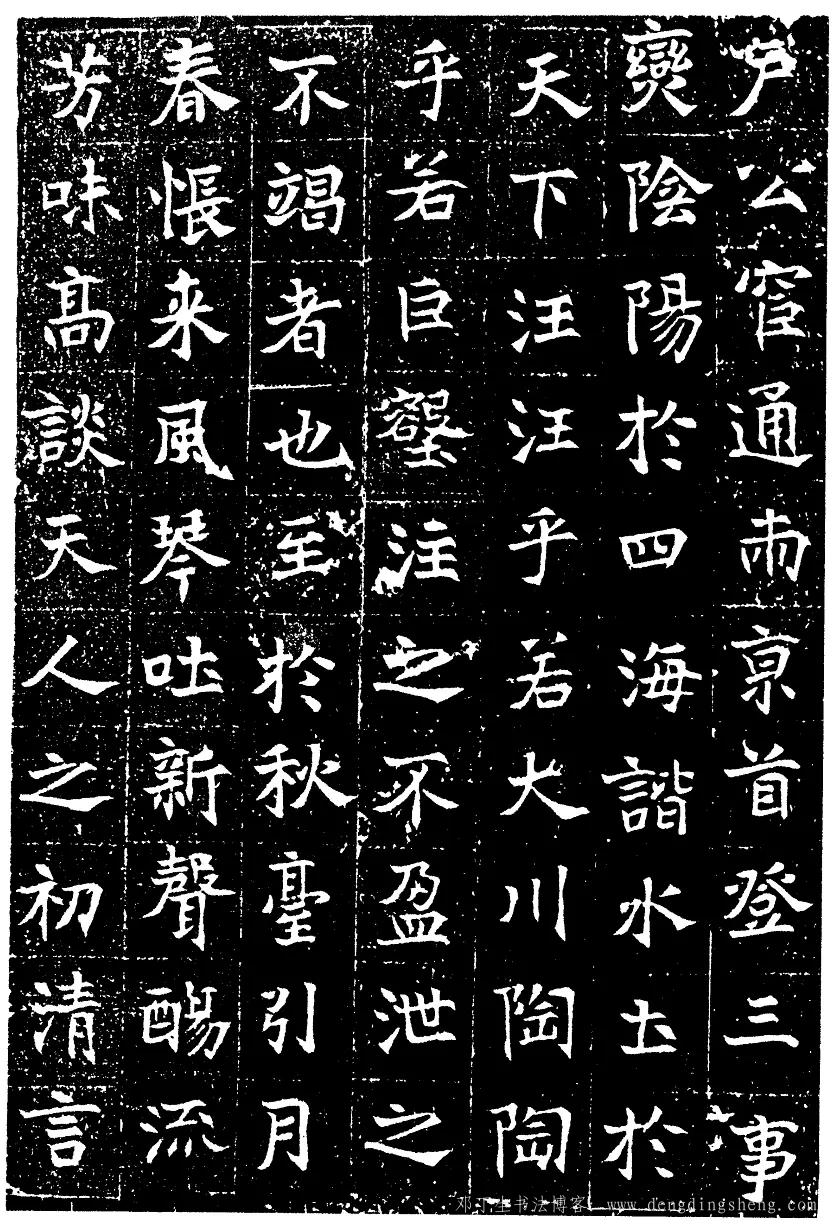 公宦通兩京首登三事
燮陰陽於四海諧水土於
天下汪汪乎若大川陶陶
乎若巨壑注之不盈泄之
不竭者也至於秋臺引月
春帳来風琴吐新聲觴流
芳味高談天人之初清言
邓丁生书法博客: www.dengdingsheng.com